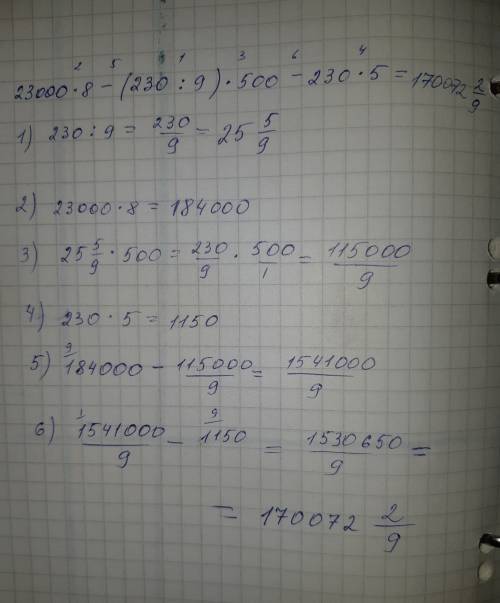 2 5 1 3 6 4
23000·8 − (230 : 9)·500 − 230·5 = 170072 2/9
1) 230 : 9 = 230/9 = 25 5/9
2) 23000·8 = 184000
3) 25 5/9 · 500 = 230/9 · 500/1 = 115000/9
4) 230 · 5 = 1150
9
5) 184000 − 115000/9 = 1541000/9
1 9
6) 1541000/9 − 1150 = 1530650/9 =
= 170072 2/9